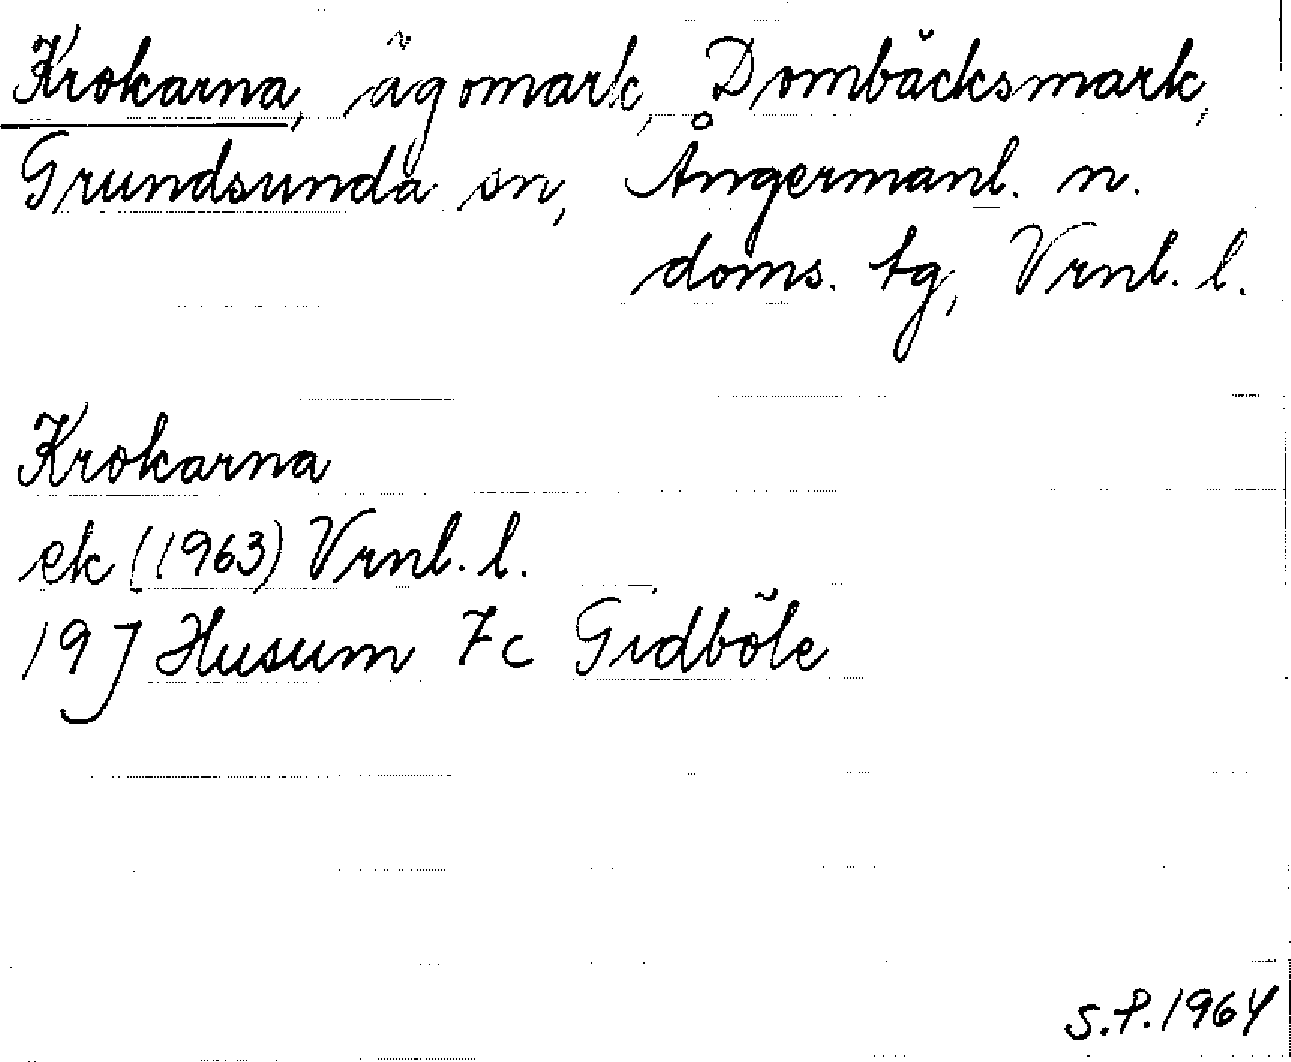 Krokarna, ägomark, Dombäcksmark,
Grundsunda sn, Ångermanl. n.
doms. tg, Vrnl. l.
Krokarna
ek (1963) Vrnl. l.
19 J Husum 7c Gidböle
S.P. 1964